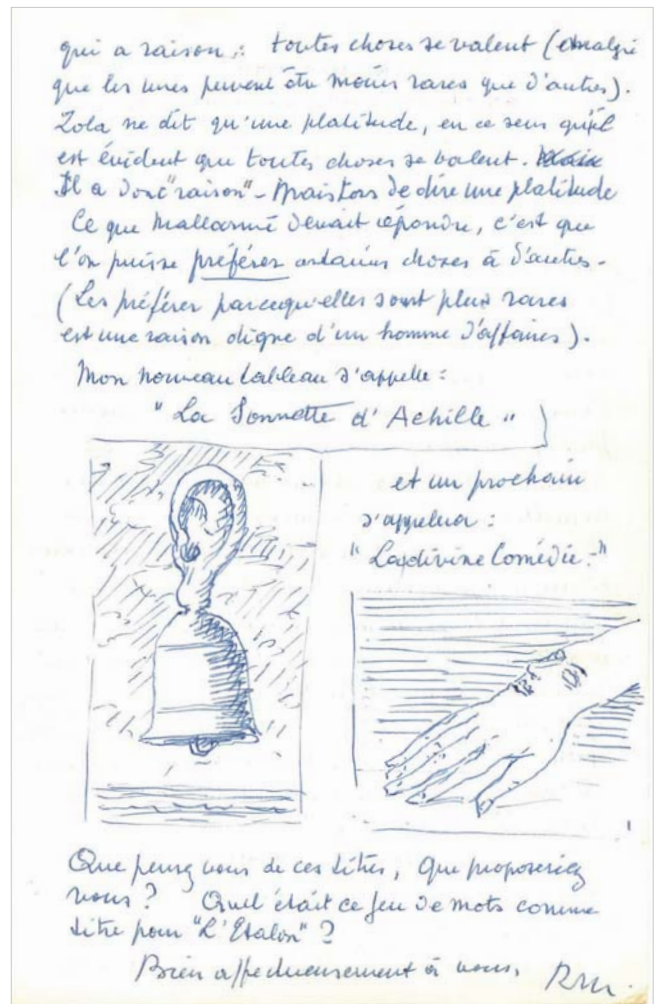 qui a raison : toutes choses se valent (malgré
que les unes peuvent être moins rares que d'autres).
Zola ne dit qu'une platitude, en ce sens qu'il
est évident que toutes choses se valent.
Il a donc "raison" - Mais de dire une platitude
Ce que Mallarmé devait répondre, c'est que
l'on puisse préférer certaines choses à d'autres -
(Les préférer parcequ'elles sont plus rares
est une raison digne d'un homme d'affaires).
Mon nouveau tableau s'appelle :
"La Sonnette d'Achille"
et un prochain
s'appellera :
"La divine Comédie."
Que pensez vous de ces titres, que proposeriez
vous ? Quel était ce jeu de mots comme
titre pour "L'Etalon" ?
Bien affectueusement à vous,
RM.